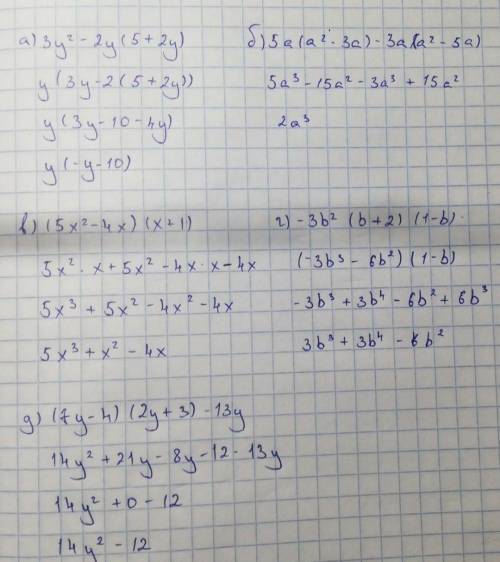 а) 3y² - 2y (5 + 2y)
y (3y - 2 (5 + 2y))
y (3y - 10 - 4y)
y (-y - 10)
б) 5a (a² - 3a) - 3a (a² - 5a)
5a³ - 15a² - 3a³ + 15a²
2a³
в) (5x² - 4x) (x + 1)
5x² · x + 5x² - 4x · x - 4x
5x³ + 5x² - 4x² - 4x
5x³ + x² - 4x
г) -3b² (b + 2) (1 - b)
(-3b³ - 6b²) (1 - b)
-3b³ + 3b⁴ - 6b² + 6b³
3b³ + 3b⁴ - 6b²
д) (7y - 4) (2y + 3) - 13y
14y² + 21y - 8y - 12 - 13y
14y² + 0 - 12
14y² - 12